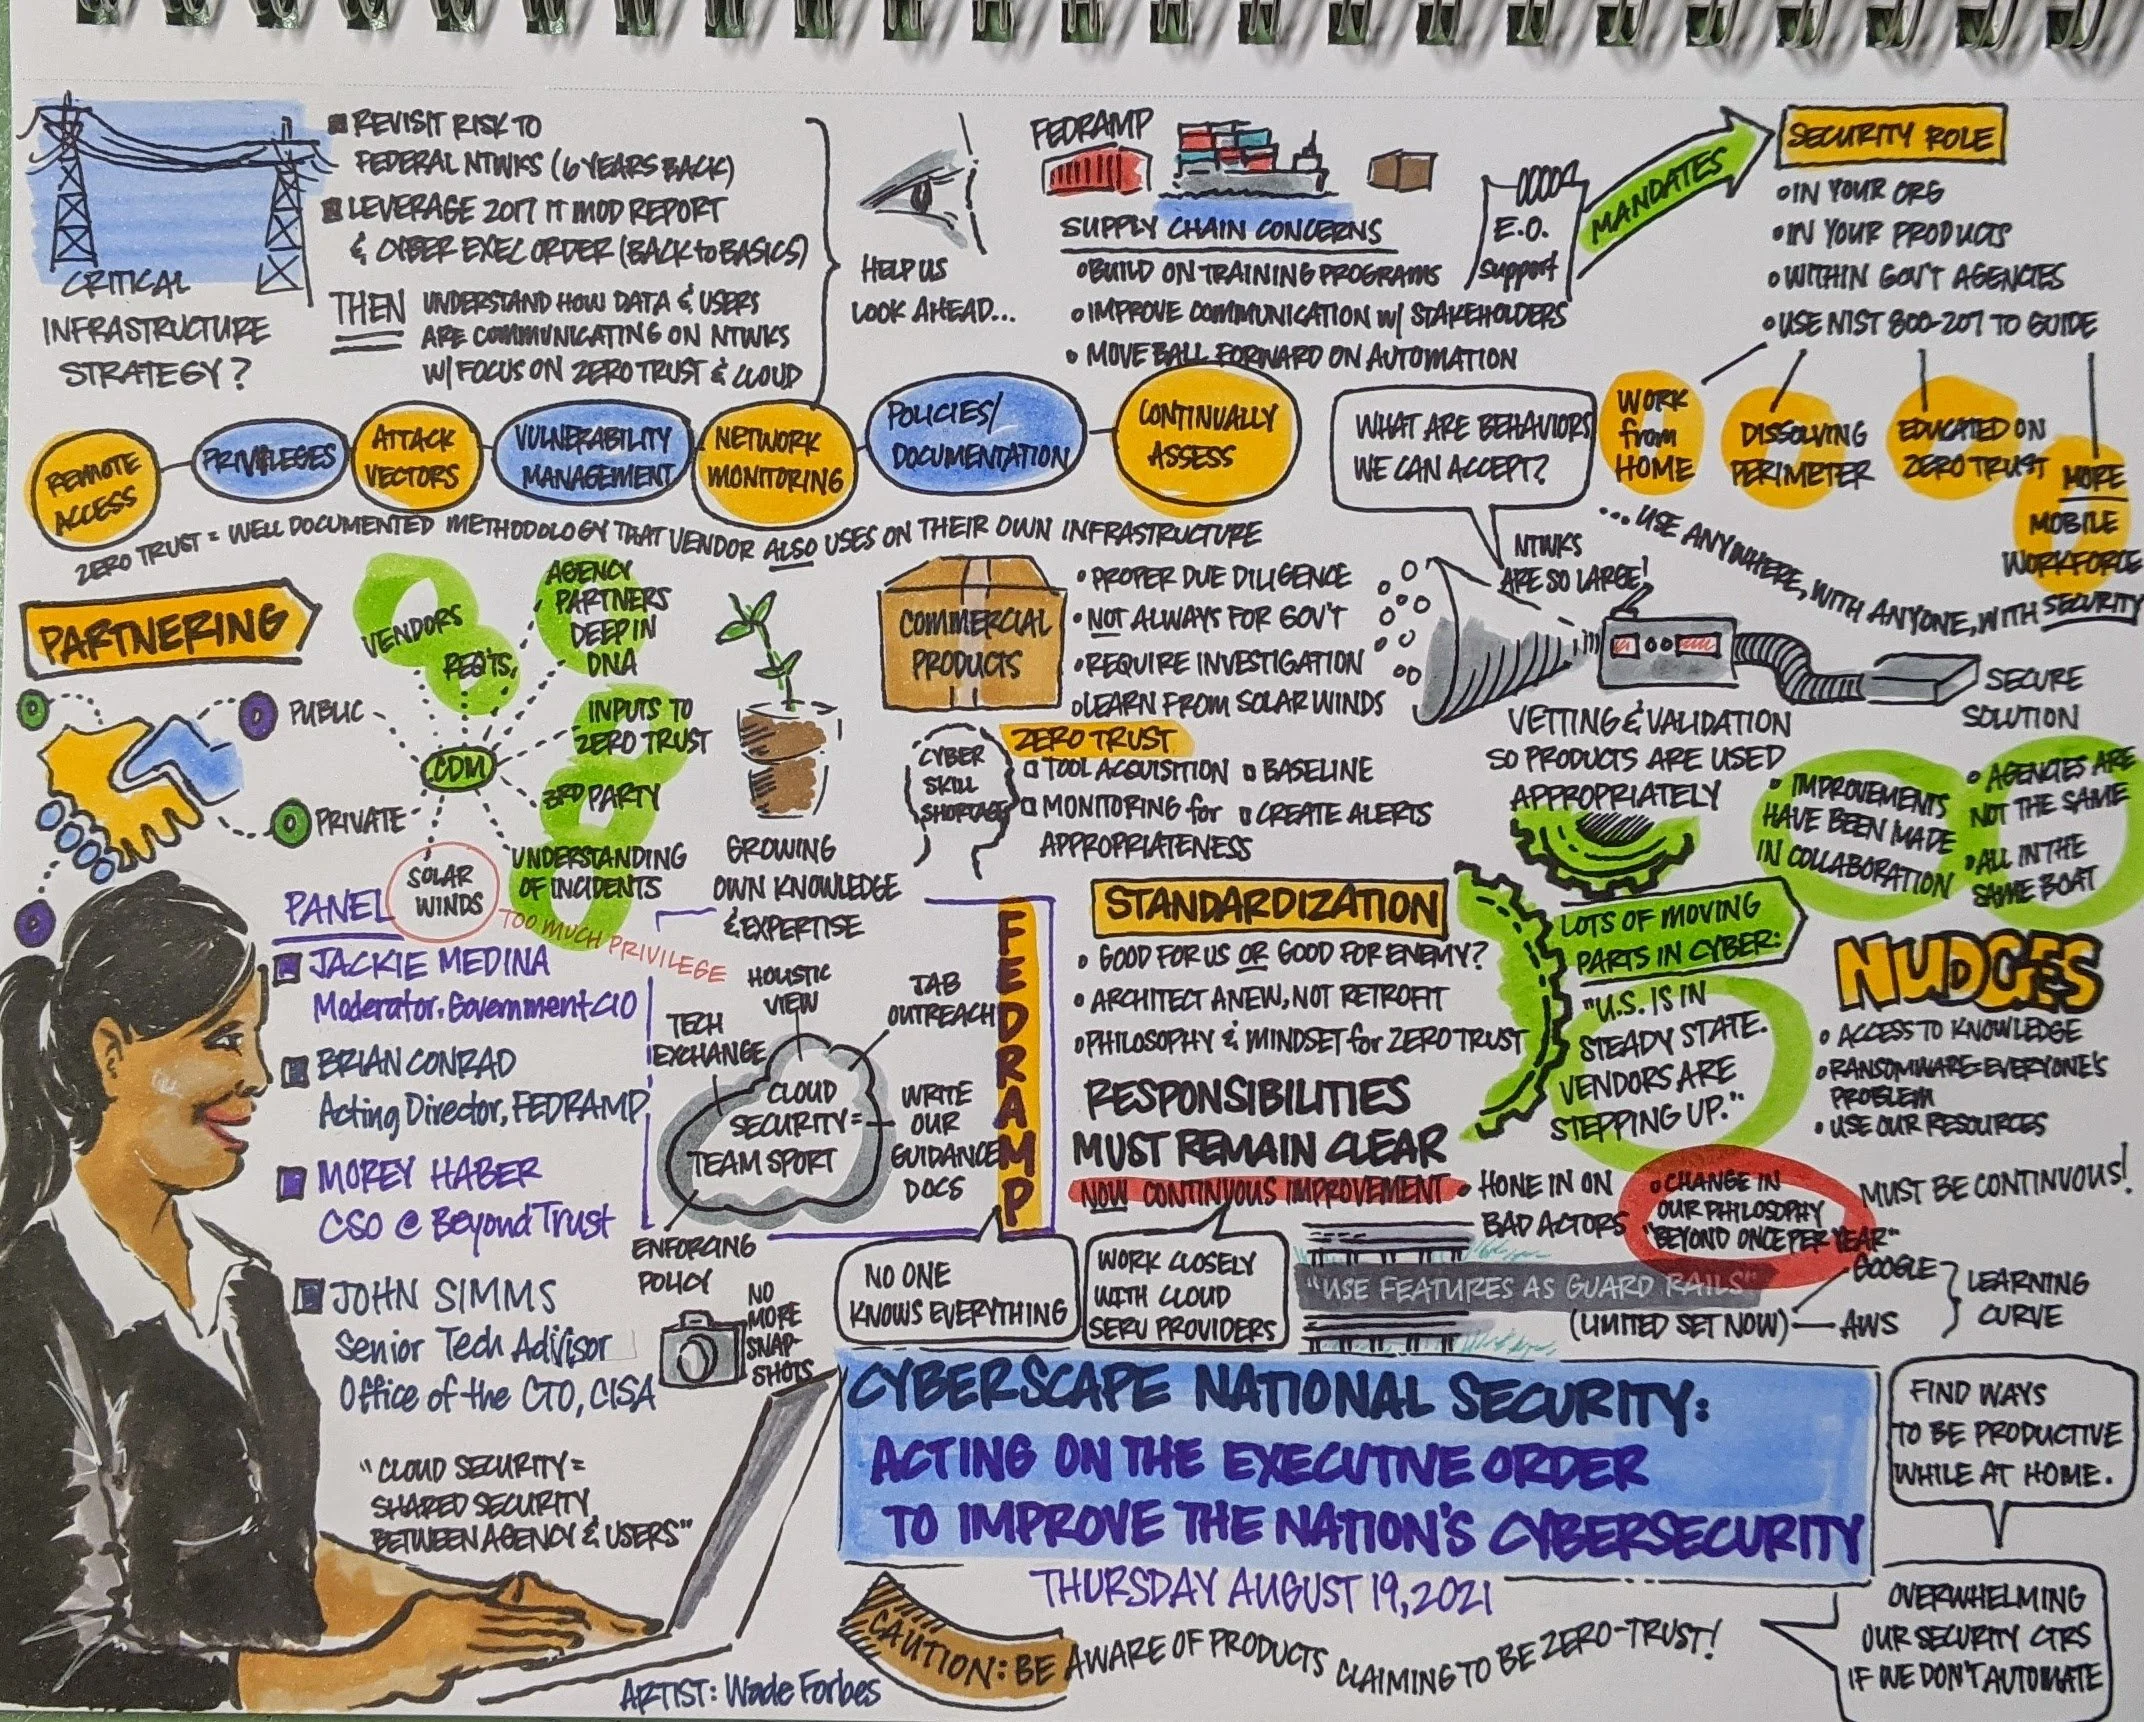 CRITICAL
INFRASTRUCTURE
STRATEGY?
REVISIT RISK TO
FEDERAL NTWKS (6 YEARS BACK)
LEVERAGE 2017 IT MOD REPORT
& CYBER EXEC ORDER (BACK to BASICS)
THEN UNDERSTAND HOW DATA & USERS
ARE COMMUNICATING ON NTWKS
W/ FOCUS ON ZERO TRUST & CLOUD
HELP US
LOOK AHEAD...
FEDRAMP
SUPPLY CHAIN CONCERNS
• BUILD ON TRAINING PROGRAMS
• IMPROVE COMMUNICATION W/ STAKEHOLDERS
• MOVE BALL FORWARD ON AUTOMATION
E.O.
Support
MANDATES
SECURITY ROLE
• IN YOUR ORG
• IN YOUR PRODUCTS
• WITHIN GOV'T AGENCIES
• USE NIST 800-207 TO GUIDE
WORK
from
HOME
DISSOLVING
PERIMETER
EDUCATED ON
ZERO TRUST
MORE
MOBILE
WORKFORCE
...USE ANYWHERE, WITH ANYONE, WITH SECURITY
REMOTE
ACCESS
PRIVILEGES
ATTACK
VECTORS
VULNERABILITY
MANAGEMENT
NETWORK
MONITORING
POLICIES/
DOCUMENTATION
CONTINUALLY
ASSESS
ZERO TRUST = WELL DOCUMENTED METHODOLOGY THAT VENDOR ALSO USES ON THEIR OWN INFRASTRUCTURE
WHAT ARE BEHAVIORS
WE CAN ACCEPT?
NTWKS
ARE SO LARGE!
PARTNERING
PUBLIC
PRIVATE
CDM
VENDORS
REQ'TS,
AGENCY
PARTNERS
DEEP IN
DNA
INPUTS TO
ZERO TRUST
3RD PARTY
UNDERSTANDING
OF INCIDENTS
SOLAR
WINDS
TOO MUCH PRIVILEGE
GROWING
OWN KNOWLEDGE
& EXPERTISE
COMMERCIAL
PRODUCTS
• PROPER DUE DILIGENCE
• NOT ALWAYS FOR GOV'T
• REQUIRE INVESTIGATION
• LEARN FROM SOLAR WINDS
CYBER
SKILL
SHORTAGE
ZERO TRUST
TOOL ACQUISITION
BASELINE
MONITORING for
APPROPRIATENESS
CREATE ALERTS
SECURE
SOLUTION
VETTING & VALIDATION
SO PRODUCTS ARE USED
APPROPRIATELY
• IMPROVEMENTS
HAVE BEEN MADE
IN COLLABORATION
• AGENCIES ARE
NOT THE SAME
• ALL IN THE
SAME BOAT
PANEL
JACKIE MEDINA
Moderator, Government CIO
BRIAN CONRAD
Acting Director, FEDRAMP
MOREY HABER
CSO @ BeyondTrust
JOHN SIMMS
Senior Tech Advisor
Office of the CTO, CISA
FEDRAMP
HOLISTIC
VIEW
TECH
EXCHANGE
JAB
OUTREACH
CLOUD
SECURITY =
TEAM SPORT
WRITE
OUR
GUIDANCE
DOCS
ENFORCING
POLICY
NO
MORE
SNAP-
SHOTS
NO ONE
KNOWS EVERYTHING
STANDARDIZATION
• GOOD FOR US OR GOOD FOR ENEMY?
• ARCHITECT ANEW, NOT RETROFIT
• PHILOSOPHY & MINDSET for ZERO TRUST
RESPONSIBILITIES
MUST REMAIN CLEAR
NOW CONTINUOUS IMPROVEMENT
WORK CLOSELY
WITH CLOUD
SERV PROVIDERS
• HONE IN ON
BAD ACTORS
LOTS OF MOVING
PARTS IN CYBER:
"U.S. IS IN
STEADY STATE.
VENDORS ARE
STEPPING UP."
NUDGES
• ACCESS TO KNOWLEDGE
• RANSOMWARE = EVERYONE'S
PROBLEM
• USE OUR RESOURCES
• CHANGE IN
OUR PHILOSOPHY
"BEYOND ONCE PER YEAR"
MUST BE CONTINUOUS!
"USE FEATURES AS GUARD RAILS"
(LIMITED SET NOW)
GOOGLE
AWS
LEARNING
CURVE
"CLOUD SECURITY =
SHARED SECURITY
BETWEEN AGENCY & USERS"
CYBERSCAPE NATIONAL SECURITY:
ACTING ON THE EXECUTIVE ORDER
TO IMPROVE THE NATION'S CYBERSECURITY
THURSDAY AUGUST 19, 2021
CAUTION: BE AWARE OF PRODUCTS CLAIMING TO BE ZERO-TRUST!
FIND WAYS
TO BE PRODUCTIVE
WHILE AT HOME.
OVERWHELMING
OUR SECURITY CTRS
IF WE DON'T AUTOMATE
ARTIST: Wade Forbes